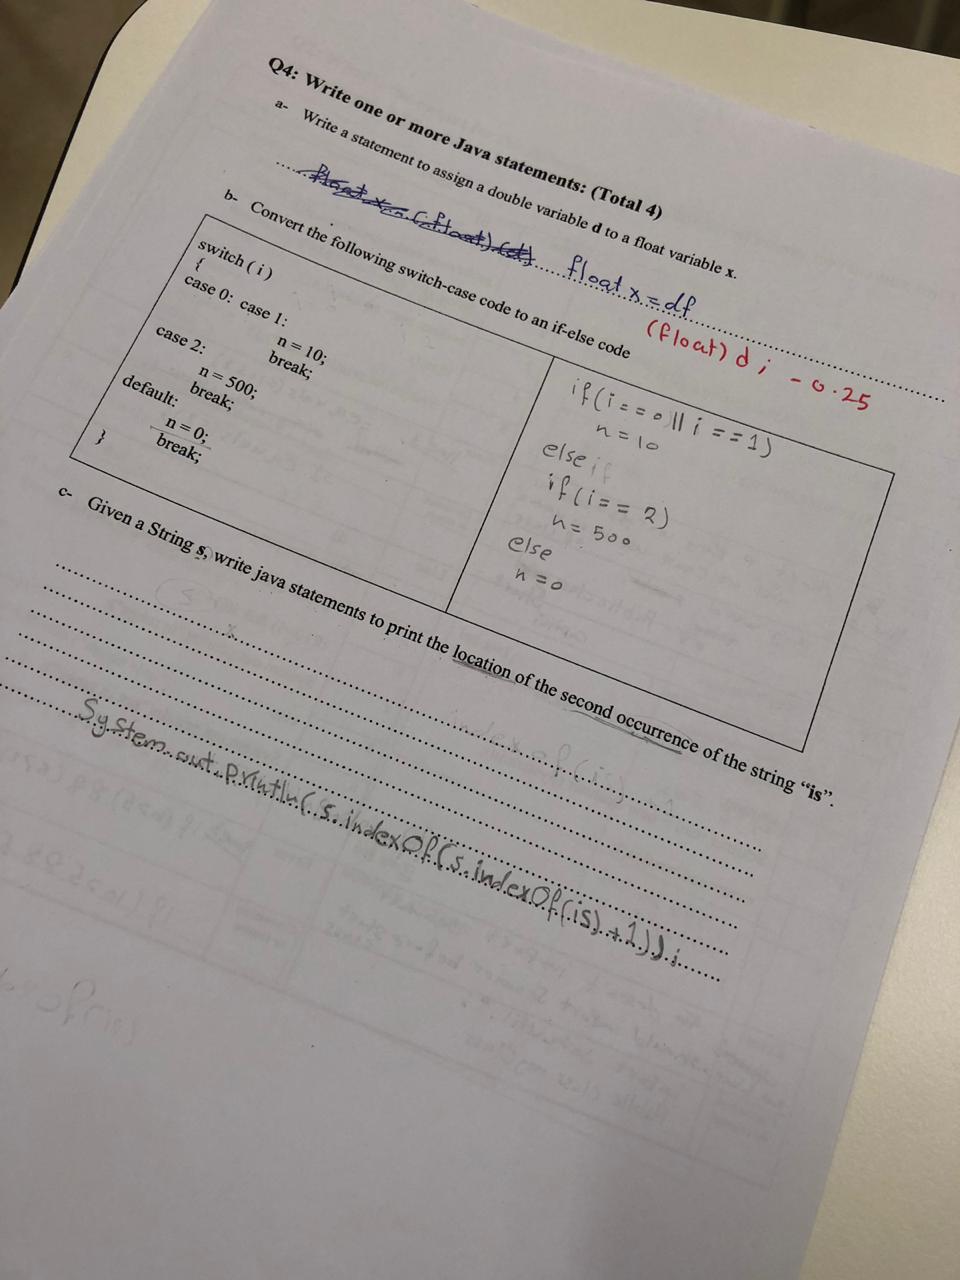 Q4: Write one or more Java statements: (Total 4)
a- Write a statement to assign a double variable d to a float variable x.
float x = (float) (d) float x = df
(float) d ; - 0.25
b- Convert the following switch-case code to an if-else code
switch ( i )
{
case 0: case 1:
n = 10;
break;
case 2:
n = 500;
break;
default:
n = 0;
break;
}
if(i==0 || i ==1)
n = 10
else if
if(i== 2)
n= 500
else
n =0
c- Given a String s, write java statements to print the location of the second occurrence of the string “is”.
System.out.println(s.indexOf(s.indexOf(is)+1));